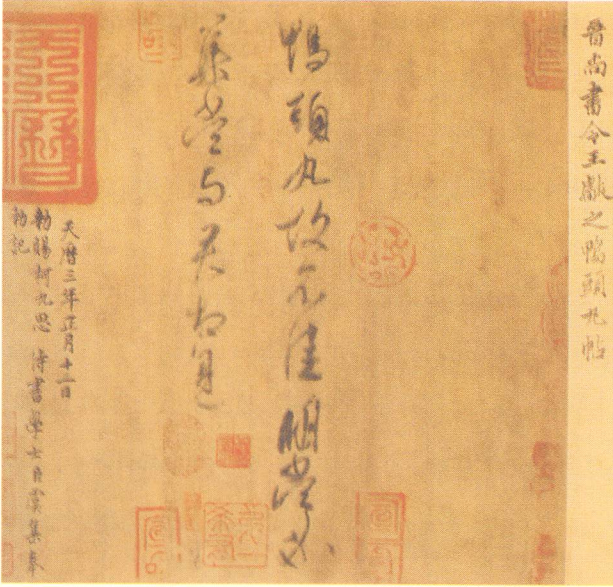 晋尚書令王獻之鴨頭丸帖
鴨頭丸故不佳明當必
集當与君相見
天曆三年正月十二日
勑賜柯九思 侍書學士臣虞集奉
勑記